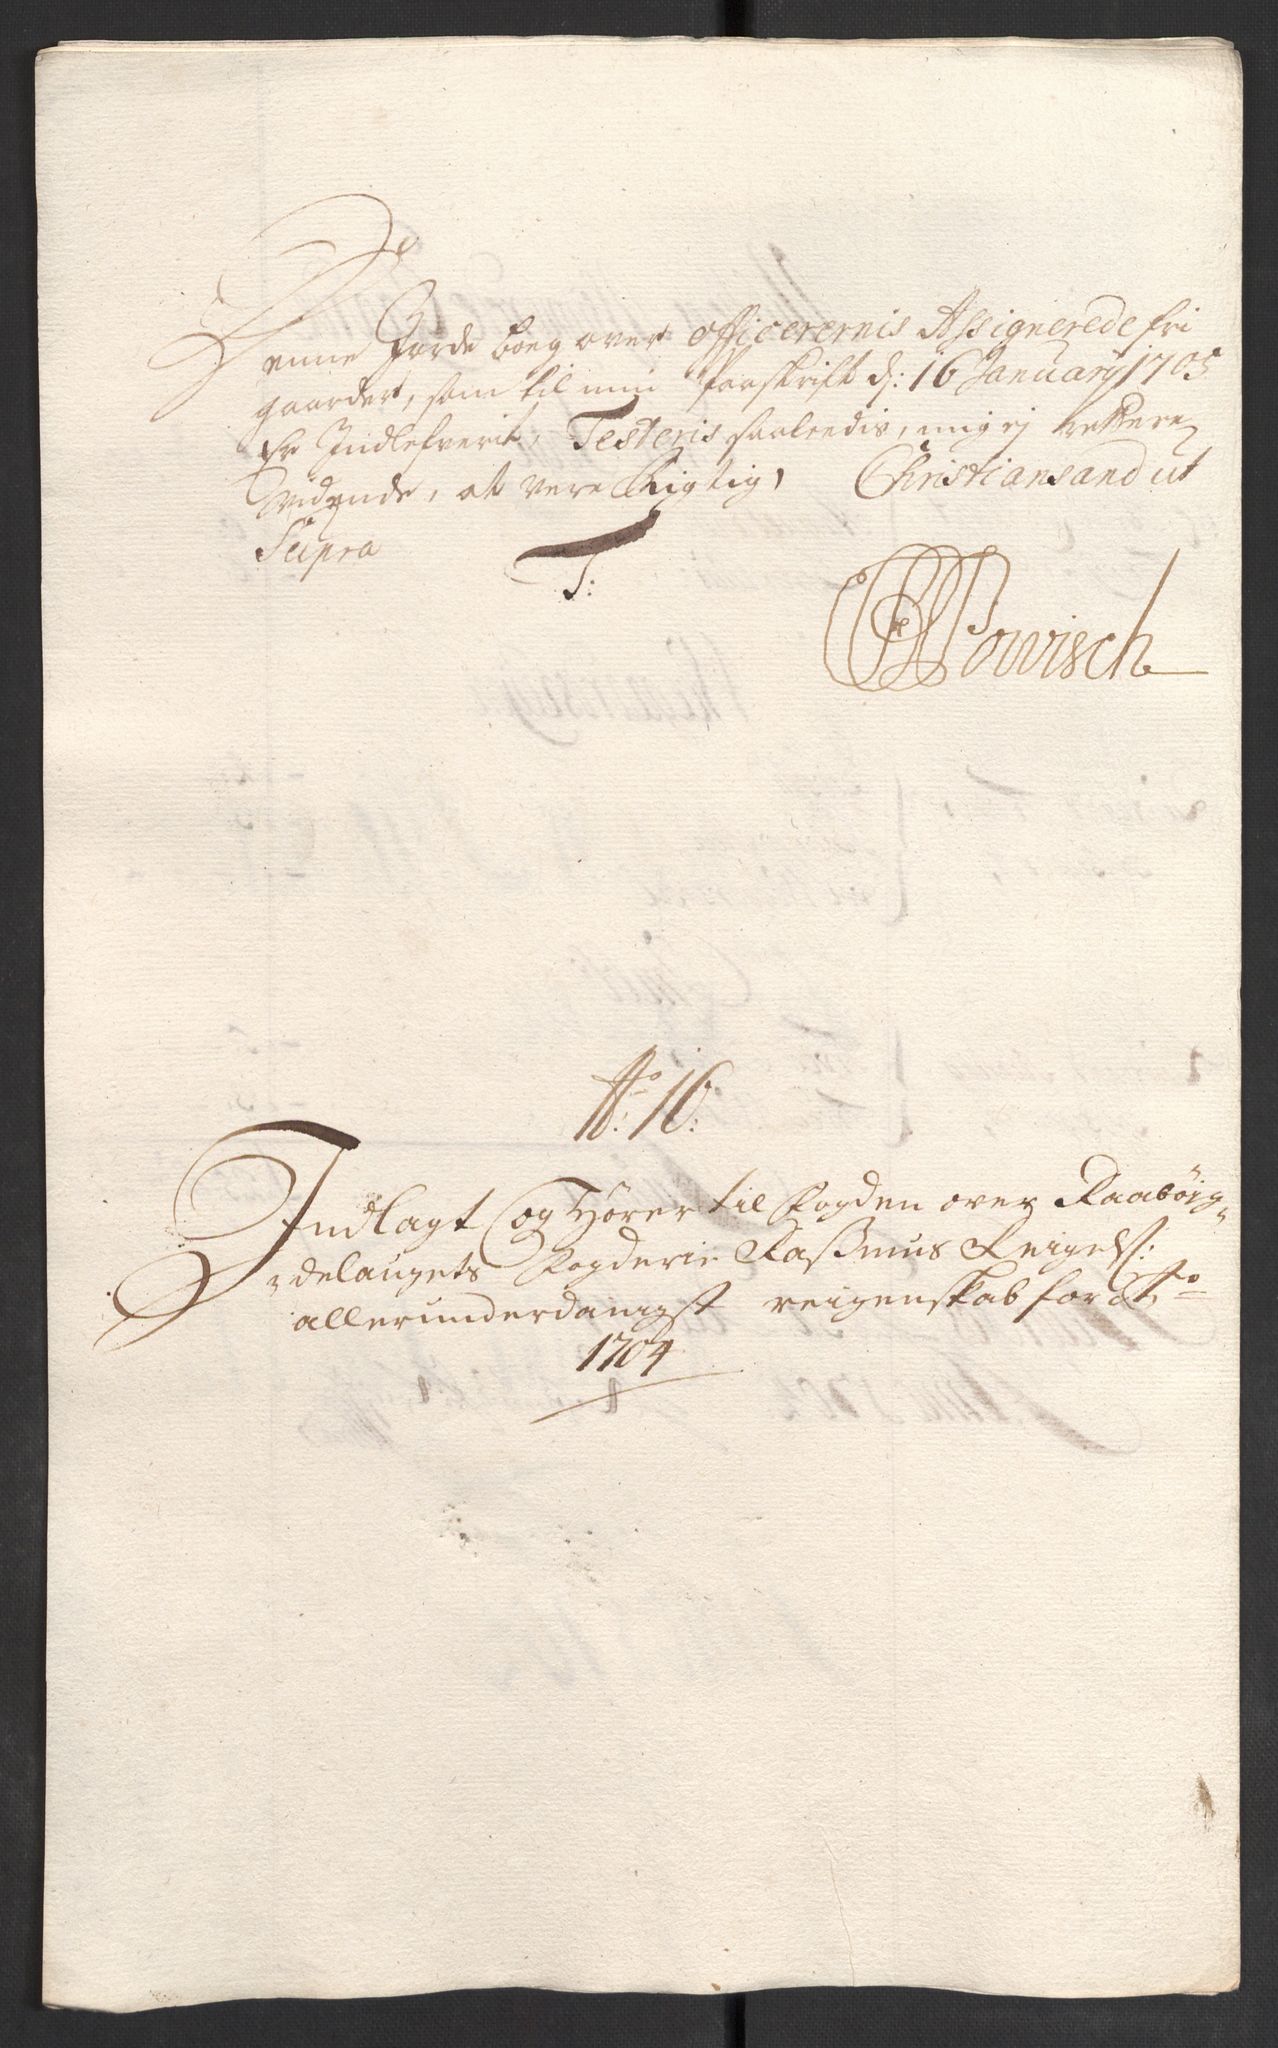 Denne Jorde boeg over officerernis Assignerede fri
gaarder, som til min Paaskrift d: 16 January 1705
Er Indlefverit, Testeris saaledis, mig ej rettere
vidende, at vere Rigtig, Christiansand ut
Supra
T:
Powisch
No: 16:
Indlagt og Hörer til Fogden over Raabög-
-delaugets Fogderie Rasmus Reigels:
allerunderdanigst reigenskab for Ao
1704